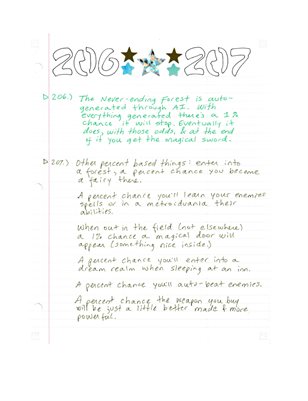 206 207
▷ 206.) The Never-ending Forest is auto-
generated through AI. With
everything generated there's a 1%
chance it will stop. Eventually it
does, with those odds, & at the end
if it you get the magical sword.
▷ 207.) Other percent based things: enter into
a forest, a percent chance you become
a fairy there.
A percent chance you'll learn your enemies
spells or in a metroidvania their
abilities.
When out in the field (not elsewhere)
a 1% chance a magical door will
appear (something nice inside.)
A percent chance you'll enter into a
dream realm when sleeping at an inn.
A percent chance you'll auto-beat enemies.
A percent chance the weapon you buy
will be just a little better made & more
powerful.